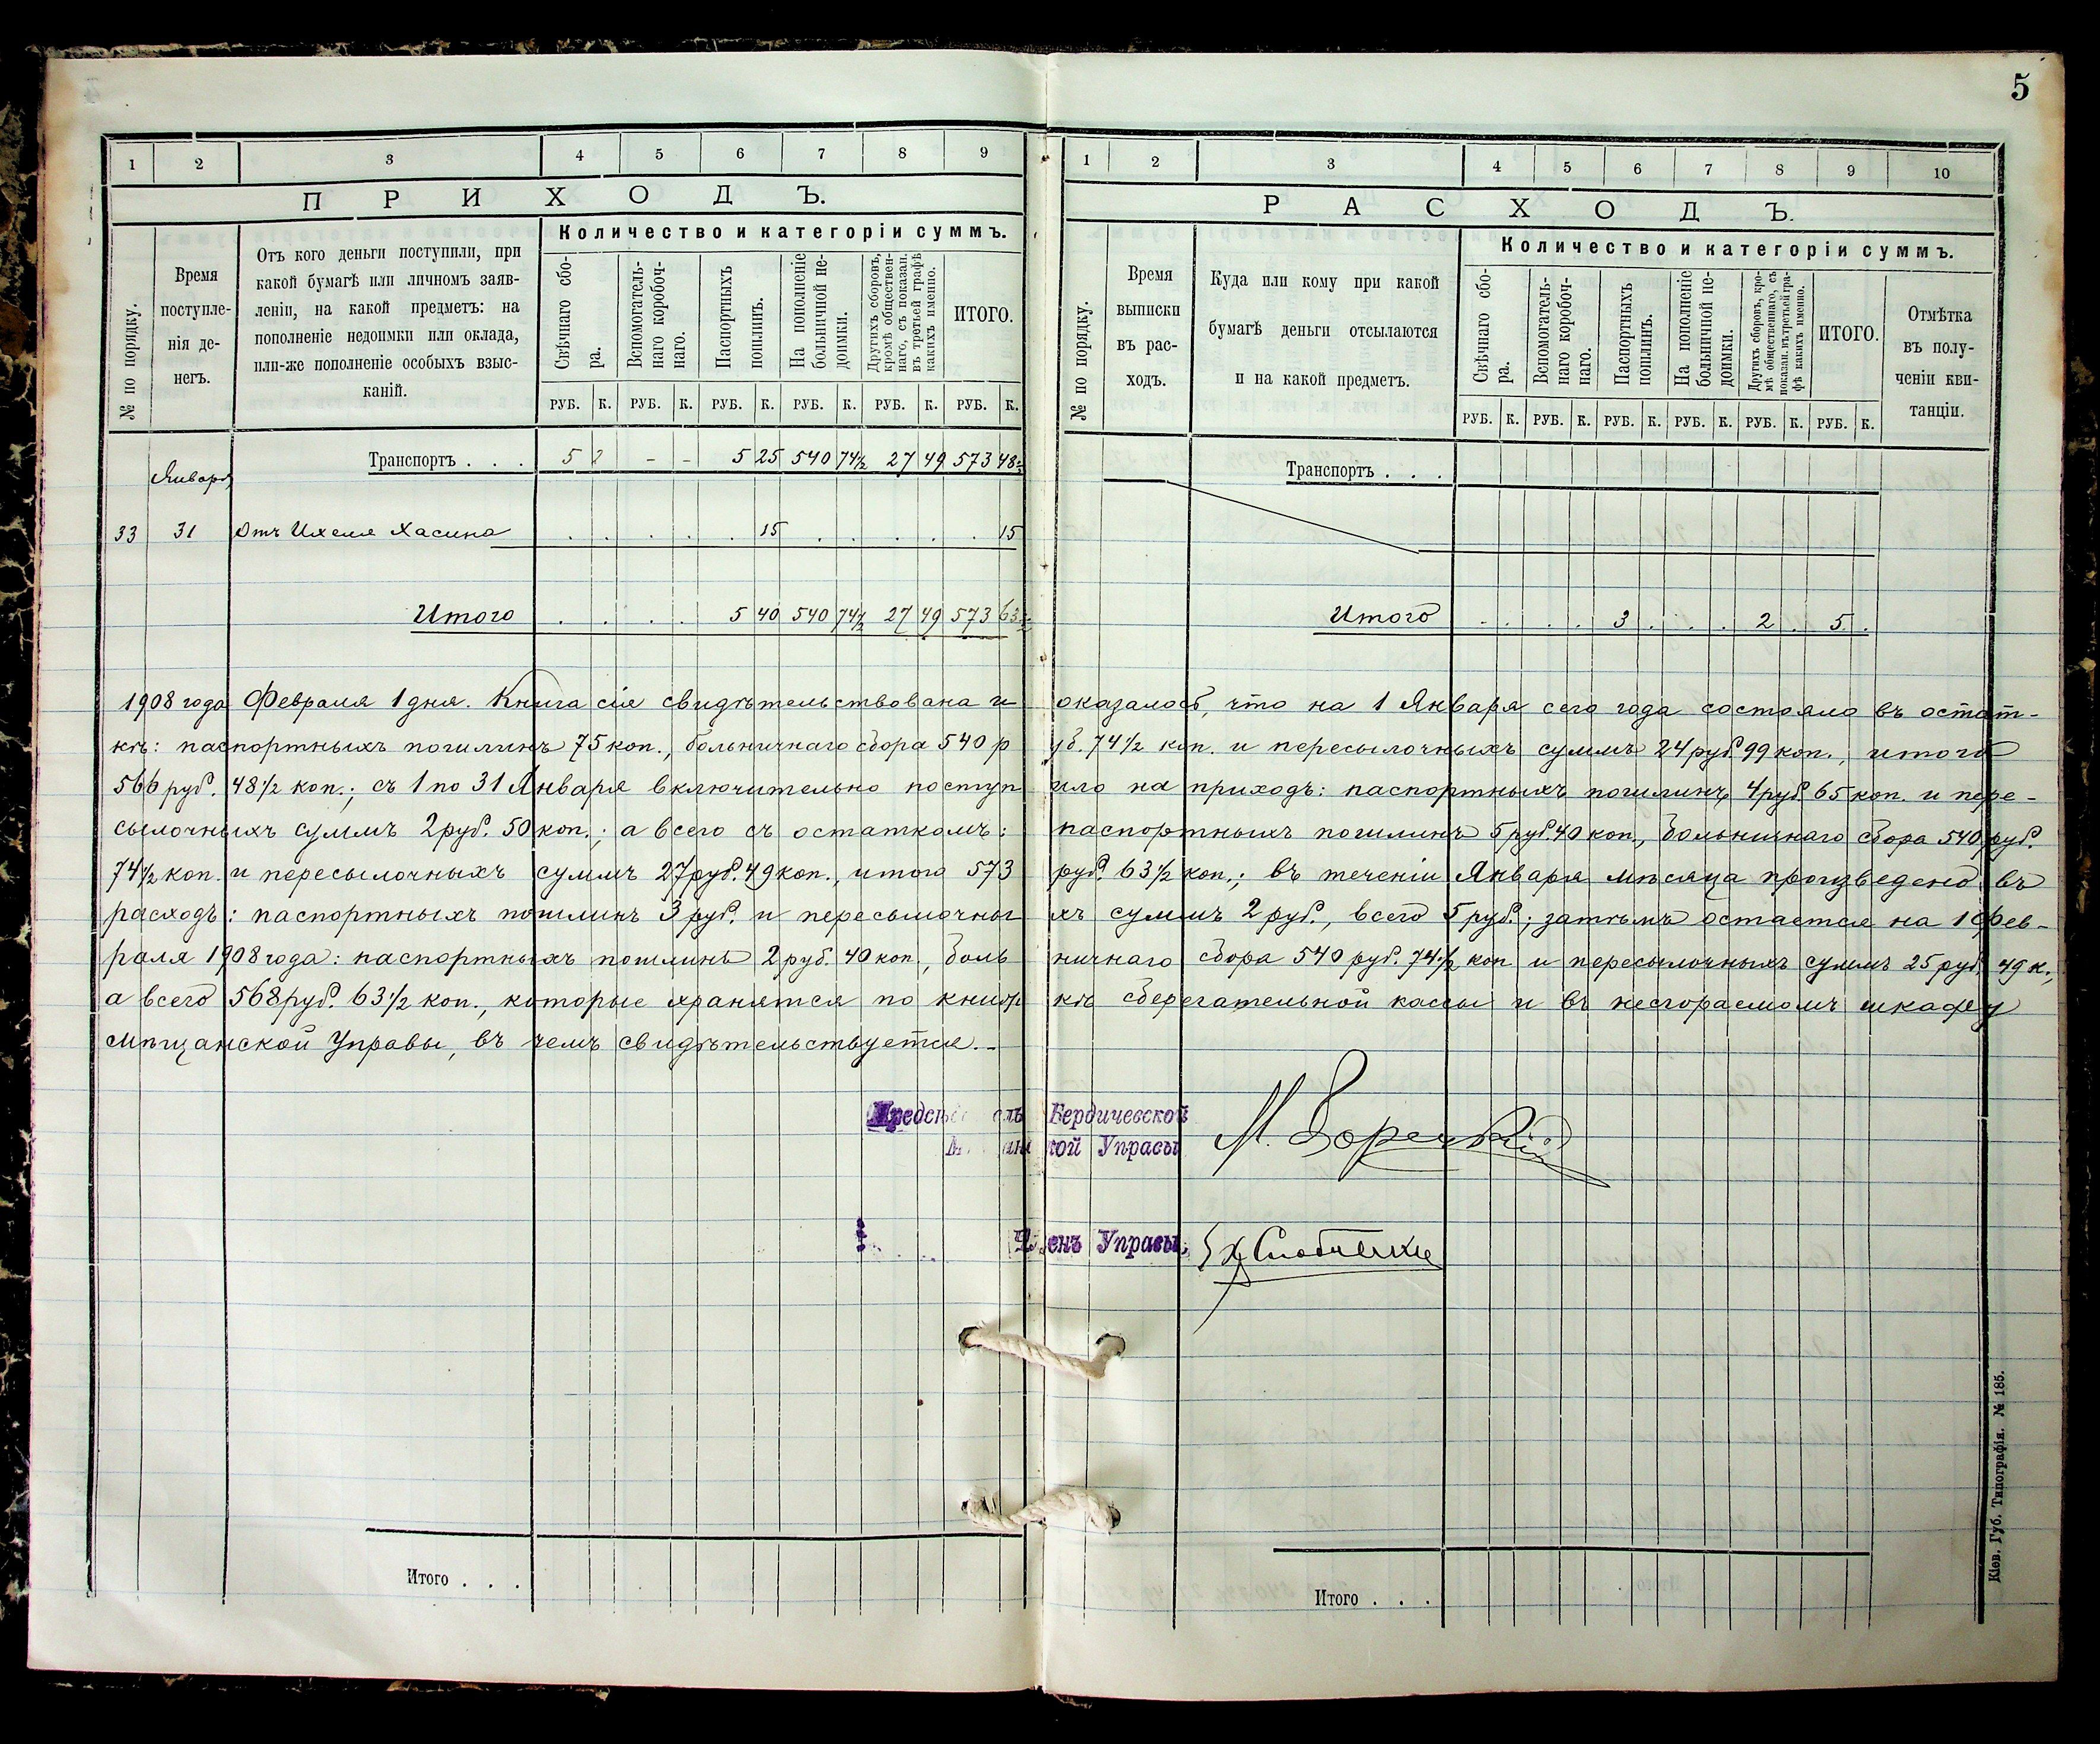 5
1 2 3 4 5 6 7 8 9
ПРИХОДЪ.
№ по порядку.
Время поступле-
нія де-
негъ.
Отъ кого деньги поступили, при
какой бумагѣ или личномъ заяв-
леніи, на какой предметъ: на
пополненіе недоимки или оклада,
или-же пополненіе особыхъ взыс-
каній.
Количество и категоріи суммъ.
Свѣчнаго сбо-
ра.
Вспомогатель-
наго коробоч-
наго.
Паспортныхъ
пошлинъ.
На пополненіе
больничной не-
доимки.
Другихъ сборовъ,
кромѣ обществен-
наго, съ показан.
въ третьей графѣ
какихъ именно.
ИТОГО.
РУБ. К. РУБ. К. РУБ. К. РУБ. К. РУБ. К. РУБ. К.
Транспортъ . . . - - 5 25 540 74½ 27 49 573 48½
Января
33 31 Отъ Ихеля Хасина . . . . . 15 . . . . . 15
Итого . . . . 5 40 540 74½ 27 49 573 63½
1 2 3 4 5 6 7 8 9 10
РАСХОДЪ.
№ по порядку.
Время
выписки
въ рас-
ходъ.
Куда или кому при какой
бумагѣ деньги отсылаются
и на какой предметъ.
Количество и категоріи суммъ.
Свѣчнаго сбо-
ра.
Вспомогатель-
наго коробоч-
наго.
Паспортныхъ
пошлинъ.
На пополненіе
больничной не-
доимки.
Другихъ сборовъ, кро-
мѣ общественнаго, съ
показан. въ третьей гра-
фѣ какихъ именно.
ИТОГО.
Отмѣтка
въ полу-
ченіи кви-
танціи.
РУБ. К. РУБ. К. РУБ. К. РУБ. К. РУБ. К. РУБ. К.
Транспортъ . . .
Итого . . . . 3 . . . 2 . 5 .
1908 года Февраля 1 дня. Книга сія свидѣтельствована и оказалось, что на 1 Января сего года состояло въ остат-
кѣ: паспортныхъ пошлинъ 75 коп., больничнаго сбора 540 руб. 74½ коп. и пересылочныхъ суммъ 24 руб. 99 коп., итого
566 руб. 48½ коп.; съ 1 по 31 Января включительно поступило на приходъ: паспортныхъ пошлинъ 4 руб. 65 коп. и пере-
сылочныхъ суммъ 2 руб. 50 коп.; а всего съ остаткомъ: паспортныхъ пошлинъ 5 руб. 40 коп., больничнаго сбора 540 руб.
74½ коп. и пересылочныхъ суммъ 27 руб. 49 коп., итого 573 руб. 63½ коп.; въ теченіи Января мѣсяца произведено въ
расходъ: паспортныхъ пошлинъ 3 руб. и пересылочныхъ суммъ 2 руб., всего 5 руб.; затѣмъ остается на 1 Фев-
раля 1908 года: паспортныхъ пошлинъ 2 руб. 40 коп., больничнаго сбора 540 руб. 74½ коп и пересылочныхъ суммъ 25 руб. 49 к.,
а всего 568 руб. 63½ коп., которые хранятся по книжкѣ сберегательной кассы и въ несгораемомъ шкафу
мѣщанской Управы, въ чемъ свидѣтельствуется.
Бердичевской
Управы
Членъ Управы,
Итого . . .
Итого . . .
Кіев. Губ. Типографія. № 185.